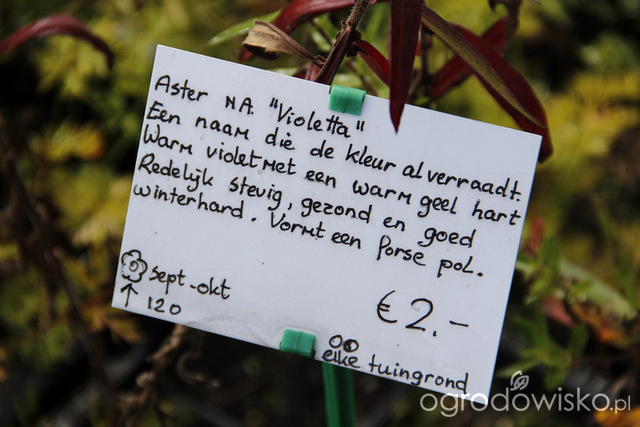 Aster N.A. "Violetta"
Een naam die de kleur al verraadt.
Warm violet met een warm geel hart
Redelijk stevig, gezond en goed
winterhard. Vormt een forse pol.
sept-okt
↑ 120
€ 2.-
elke tuingrond
ogrodowisko.pl